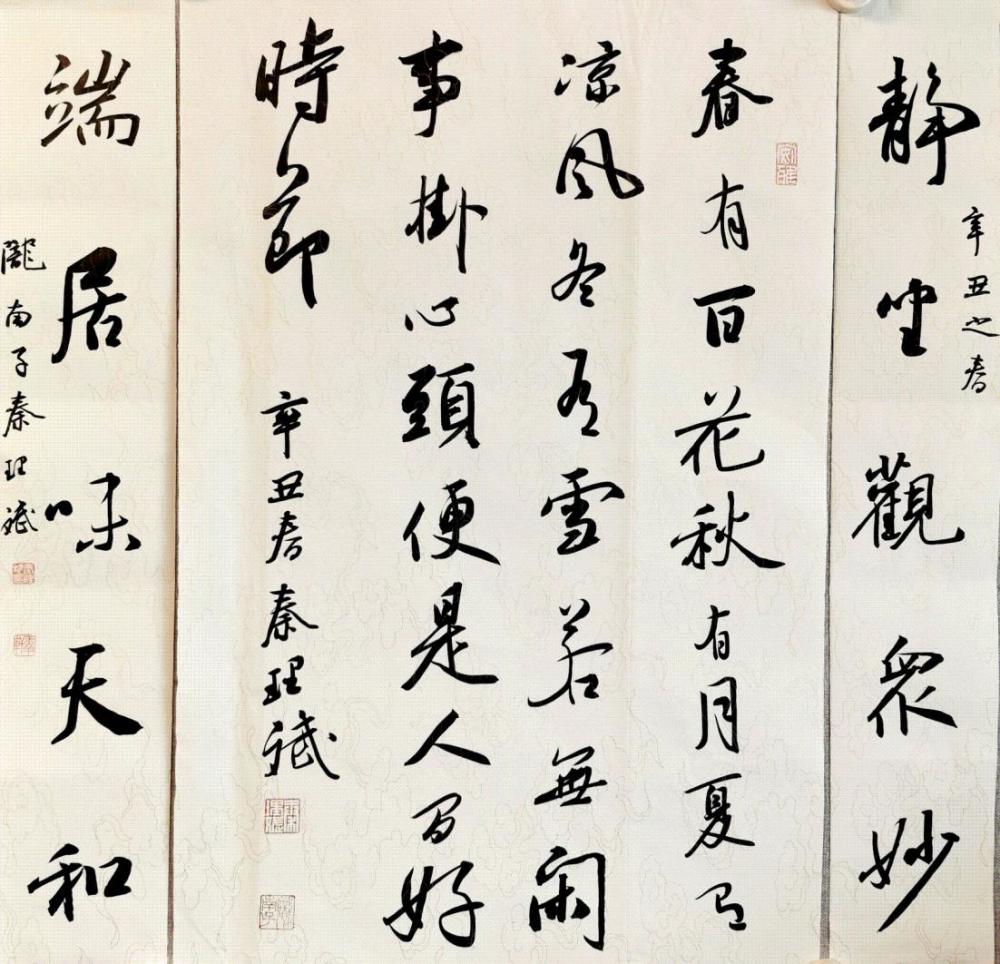 静坐觀衆妙
辛丑之春
春有百花秋有月夏有
凉風冬有雪若無闲
事掛心頭便是人间好
時節
辛丑春秦理斌
端居味天和
隴南子秦理斌